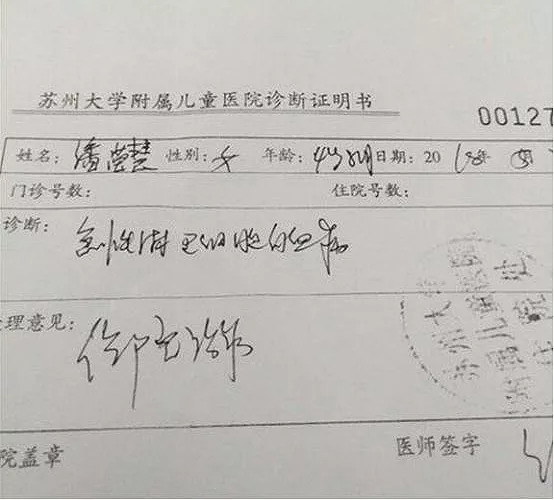 苏州大学附属儿童医院诊断证明书
00127
姓名：潘莹慧 性别：女 年龄：4岁 月 日期：2018年 月
门诊号数： 住院号数：
诊断：
急性淋巴细胞白血病
理意见：
院盖章 医师签字